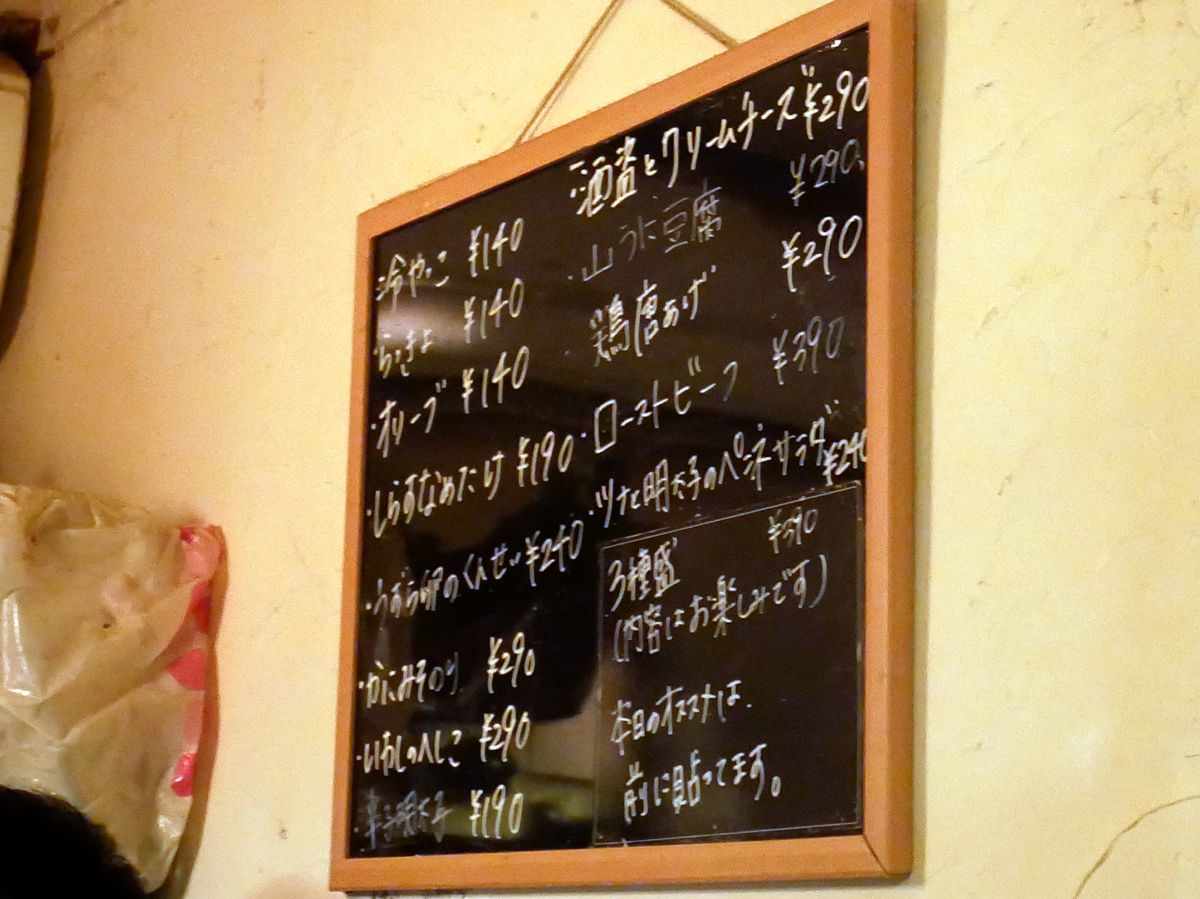 ・冷やっこ ¥140
・らっきょ ¥140
・オリーブ ¥140
・しらすなめたけ ¥190
・うずら卵のくんせい ¥240
・かにみそのり ¥290
・いわしのへしこ ¥290
・辛子明太子 ¥190
・酒盗とクリームチーズ ¥290
・山うに豆腐 ¥290
・鶏唐あげ ¥290
・ローストビーフ ¥390
・ツナと明太子のペンネサラダ ¥240
3種盛 ¥390
(内容はお楽しみです)
本日のオススメは
前に貼ってます。